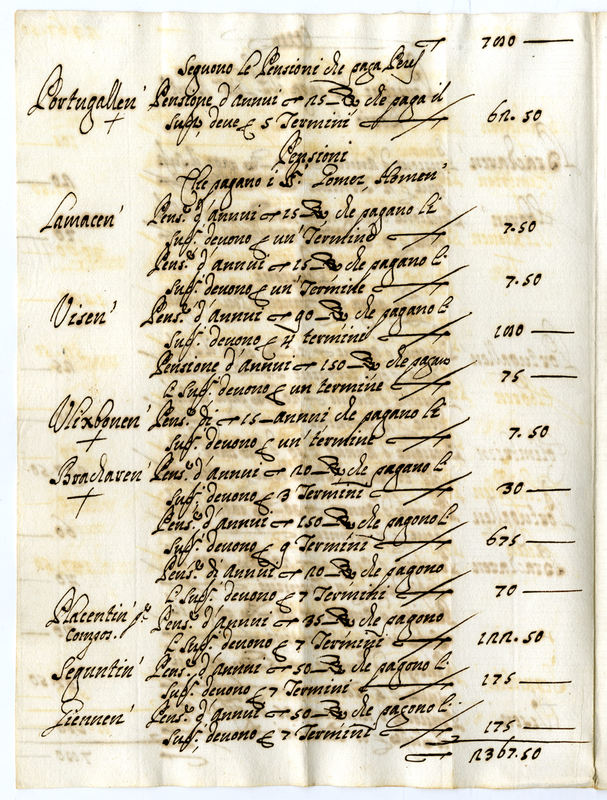 ▽ 780
Seguono le Pensioni che paga Perez
Portugallen' Pensione d'annui ▽ 25 che paga il
sudd. deve p 5 Termini 62.50
Pensioni
Che pagano i SS. Gomez, Homen'
Lamacen' Pens.e d'annui ▽ 15 che pagano li
sudd. devono p un' Termine 7.50
Pens.e d'annui ▽ 15 che pagano li
sudd. devono p un' Termine 7.50
Visen' Pens.e d'annui ▽ 90 che pagano li
sudd. devono p 4 termine 180
Pensione d'annui ▽ 150 che pagano
li sudd. devono p un termine 75
Vlixbonen' Pens.e di ▽ 15 annui che pagano li
sudd. devono p un' termine 7.50
Bracharen' Pens.e d'annui ▽ 20 che pagano li
sudd. devono p 3 Termini 30
Pens.e d'annui ▽ 150 che pagono li
sudd. devono p 9 Termini 675
Pens.e di Annui ▽ 20 che pagono
li sudd. devono p 7 Termini 70
Placentin' Pens.e d'annui ▽ 35 che pagono
li sudd. devono p 7 Termini 122.50
Seguntin' Pens.e d'annui ▽ 50 che pagono li
sudd. devono p 7 Termini 175
Giennen' Pens.e d'annui ▽ 50 che pagono li
sudd. devono p 7 Termini 175
▽ 2367.50